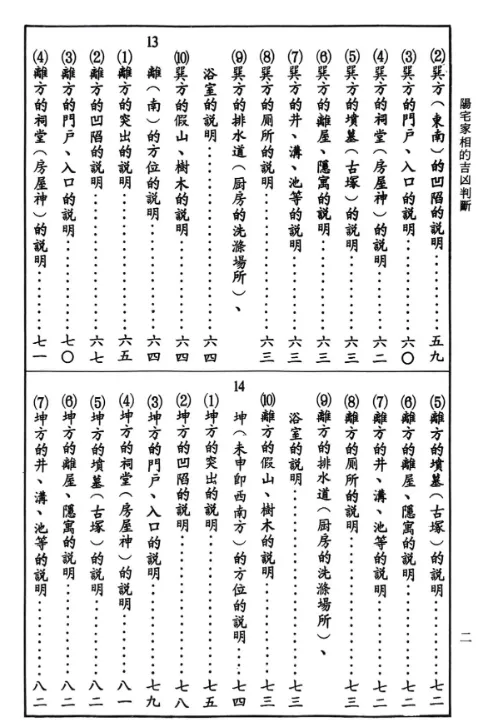 陽宅家相的吉凶判斷
二
(2)巽方(東南)的凹陷的說明………五九
(3)巽方的門戶、入口的說明………六〇
(4)巽方的祠堂(房屋神)的說明………六二
(5)巽方的墳墓(古塚)的說明………六三
(6)巽方的離屋、隱寓的說明………六三
(7)巽方的井、溝、池等的說明………六三
(8)巽方的厠所的說明………六三
(9)巽方的排水道(厨房的洗滌場所)、
浴室的說明………六四
(10)巽方的假山、樹木的說明………六四
13 離(南)的方位的說明………六四
(1)離方的突出的說明………六五
(2)離方的凹陷的說明………六七
(3)離方的門戶、入口的說明………七〇
(4)離方的祠堂(房屋神)的說明………七一
(5)離方的墳墓(古塚)的說明………七二
(6)離方的離屋、隱寓的說明………七二
(7)離方的井、溝、池等的說明………七二
(8)離方的厠所的說明………七三
(9)離方的排水道(厨房的洗滌場所)、
浴室的說明………七三
(10)離方的假山、樹木的說明………七三
14 坤(未申即西南方)的方位的說明………七四
(1)坤方的突出的說明………七五
(2)坤方的凹陷的說明………七八
(3)坤方的門戶、入口的說明………七九
(4)坤方的祠堂(房屋神)的說明………八一
(5)坤方的墳墓(古塚)的說明………八二
(6)坤方的離屋、隱寓的說明………八二
(7)坤方的井、溝、池等的說明………八二